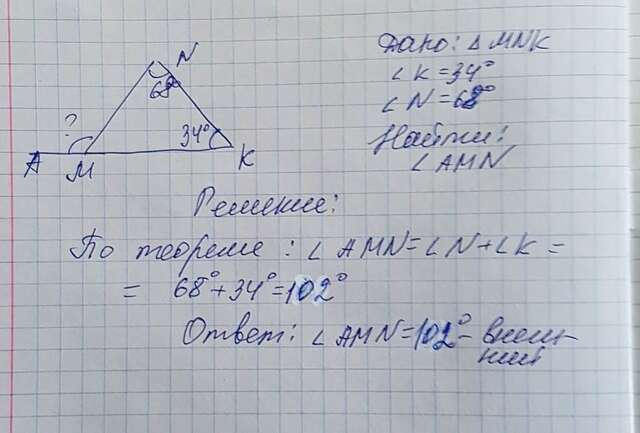 N
68°
?
34°
A
M
K
Дано: Δ MNK
∠K=34°
∠N=68°
Найти:
∠AMN
Решение:
По теореме: ∠AMN=∠N+∠K=
= 68°+34°=102°
Ответ: ∠AMN=102°- внеш-
ний